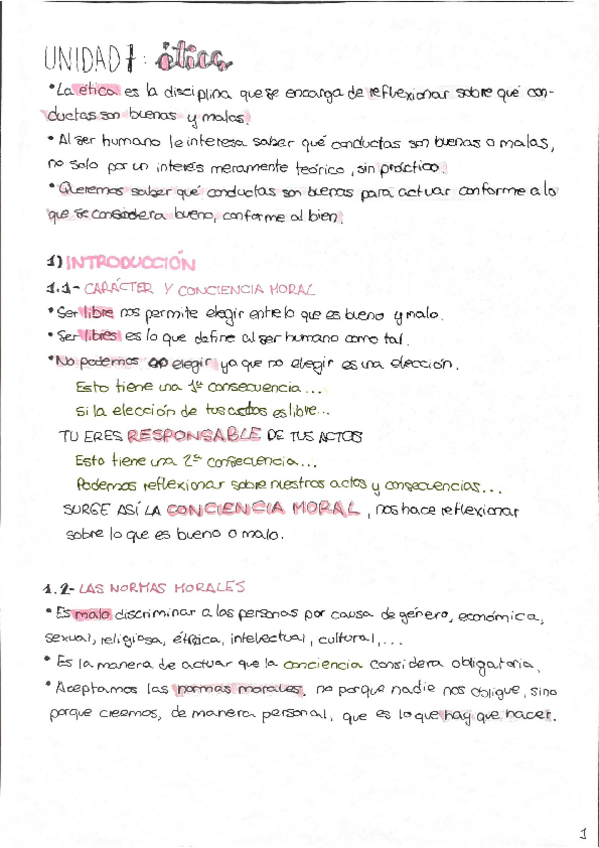 UNIDAD 1: ética
• La ética es la disciplina que se encarga de reflexionar sobre qué con-
ductas son buenas y malas.
• Al ser humano le interesa saber qué conductas son buenas o malas,
no solo por un interés meramente teórico, sin práctico.
• Queremos saber qué conductas son buenas para actuar conforme a lo
que se considera bueno, conforme al bien.
1) INTRODUCCIÓN
1.1- CARÁCTER Y CONCIENCIA MORAL
• Ser libre nos permite elegir entre lo que es bueno y malo.
• Ser libres es lo que define al ser humano como tal.
• No podemos no elegir ya que no elegir es una elección.
Esto tiene una 1ª consecuencia...
Si la elección de tus actos es libre...
TU ERES RESPONSABLE DE TUS ACTOS
Esto tiene una 2ª consecuencia...
Podemos reflexionar sobre nuestros actos y consecuencias...
SURGE ASÍ LA CONCIENCIA MORAL, nos hace reflexionar
sobre lo que es bueno o malo.
1.2- LAS NORMAS MORALES
• Es malo discriminar a las personas por causa de género, económica,
sexual, religiosa, étnica, intelectual, cultural,...
• Es la manera de actuar que la conciencia considera obligatoria.
• Aceptamos las normas morales, no porque nadie nos obligue, sino
porque creemos, de manera personal, que es lo que hay que hacer.
1